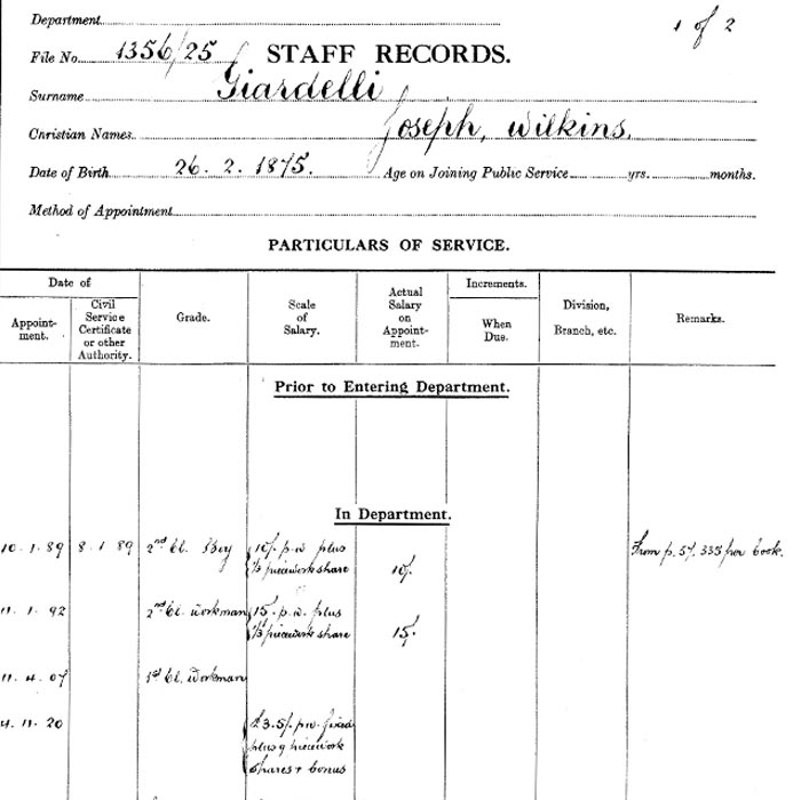 1 of 2
Department
File No. 1356/25 STAFF RECORDS.
Surname Giardelli
Christian Names Joseph, Wilkins.
Date of Birth 26. 2. 1875. Age on Joining Public Service yrs. months.
Method of Appointment
PARTICULARS OF SERVICE.
Date of
Appoint-
ment.
Civil
Service
Certificate
or other
Authority.
Grade.
Scale
of
Salary.
Actual
Salary
on
Appoint-
ment.
Increments.
When
Due.
Division,
Branch, etc.
Remarks.
Prior to Entering Department.
In Department.
10.1.89 8.1.89 2nd Cl. Boy 10/. p.w plus From p. 335 pav book.
piecework share 10/.
11.1.92 2nd Cl. workman 15/. p.w. plus
piecework share 15/.
11.4.07 1st Cl. Workman
4.11.20 £3.5/. p.w. fixed
plus piecework
shares + bonus